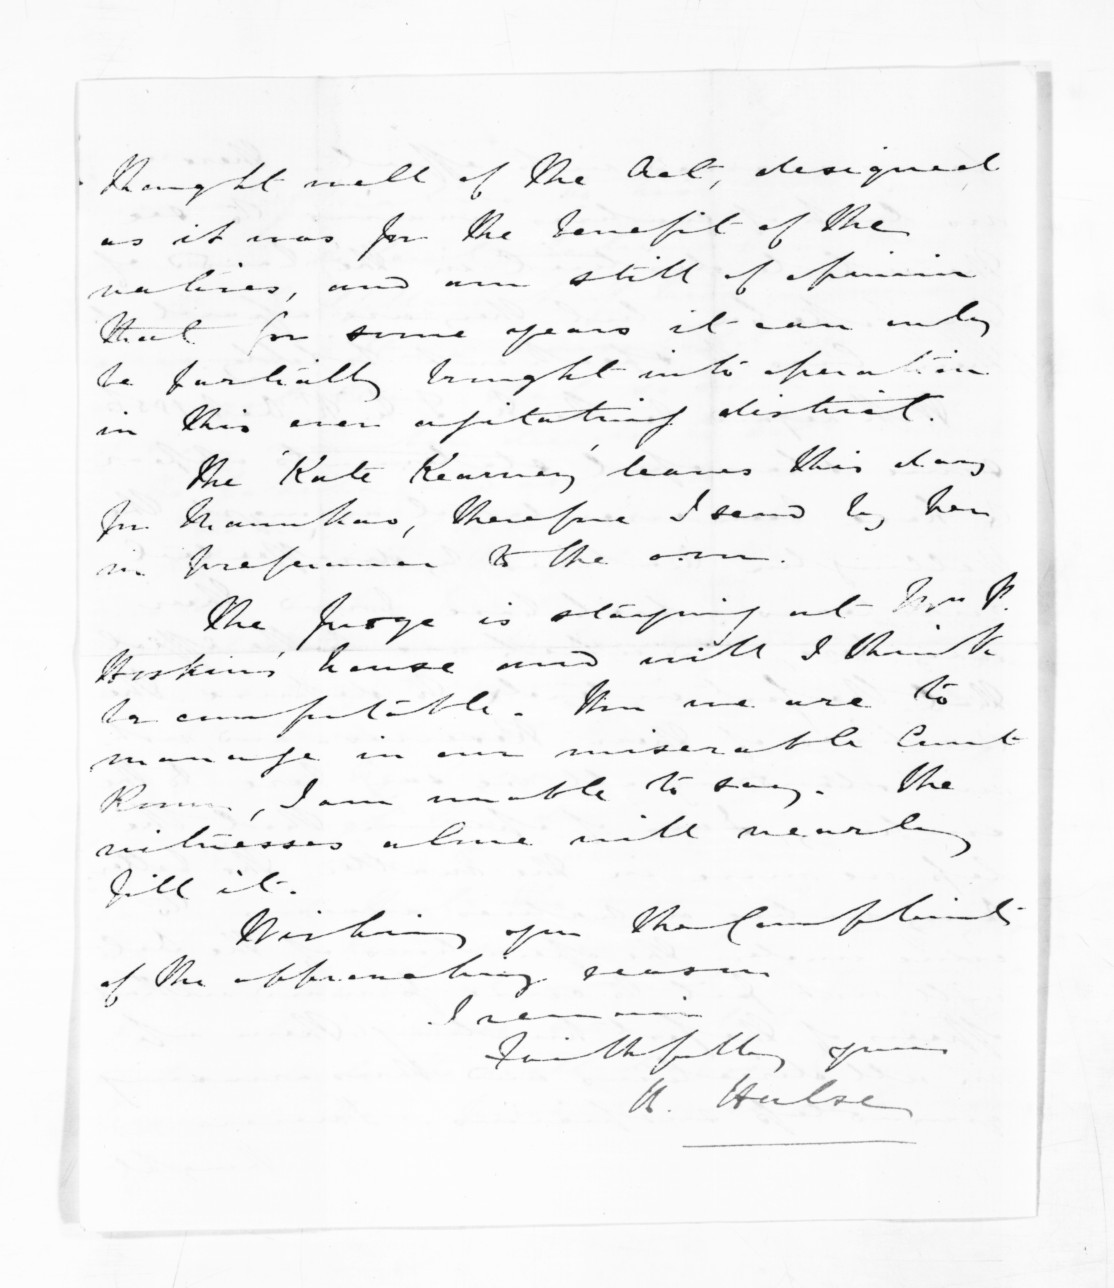 thought well of the Act, designed
as it was for the benefit of the
natives, and am still of opinion
that for some years it can only
be partially brought into operation
in this ever agitating district.
The 'Kate Kearney' leaves this day
for Manukau, therefore I send by her
in preference to the
The Judge is staying at P.
Hoskins' house and will I think
be comfortable. How we are to
manage in our miserable Court
Room, I am unable to say. The
witnesses alone will nearly
fill it.
Wishing you the Compliments
of the approaching season
I remain
Faithfully yours
H. Halse